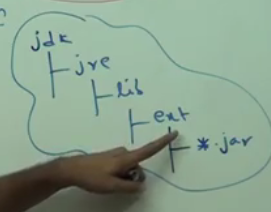 jdk
jre
lib
ext
*.jar